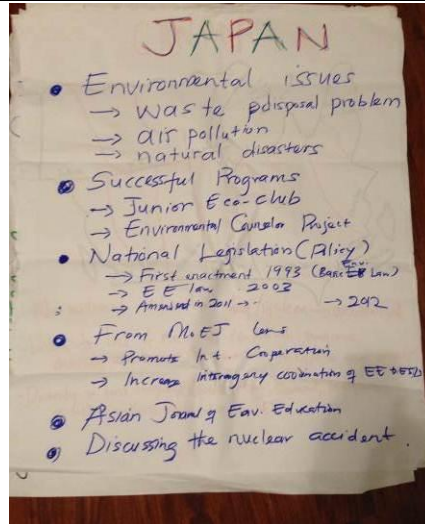 JAPAN
• Environmental issues
→ waste disposal problem
→ air pollution
→ natural disasters
• Successful Programs
→ Junior Eco-club
→ Environmental Counselor Project
• National Legislation (Policy)
→ First enactment 1993 (Basic Envi. Law)
→ EE law 2003
→ Amended in 2011 → → 2012
• From MoEJ
→ Promote Int. Cooperation
→ Increase interagency coordination of EE & ESD
• Asian Journal of Env. Education
• Discussing the nuclear accident.